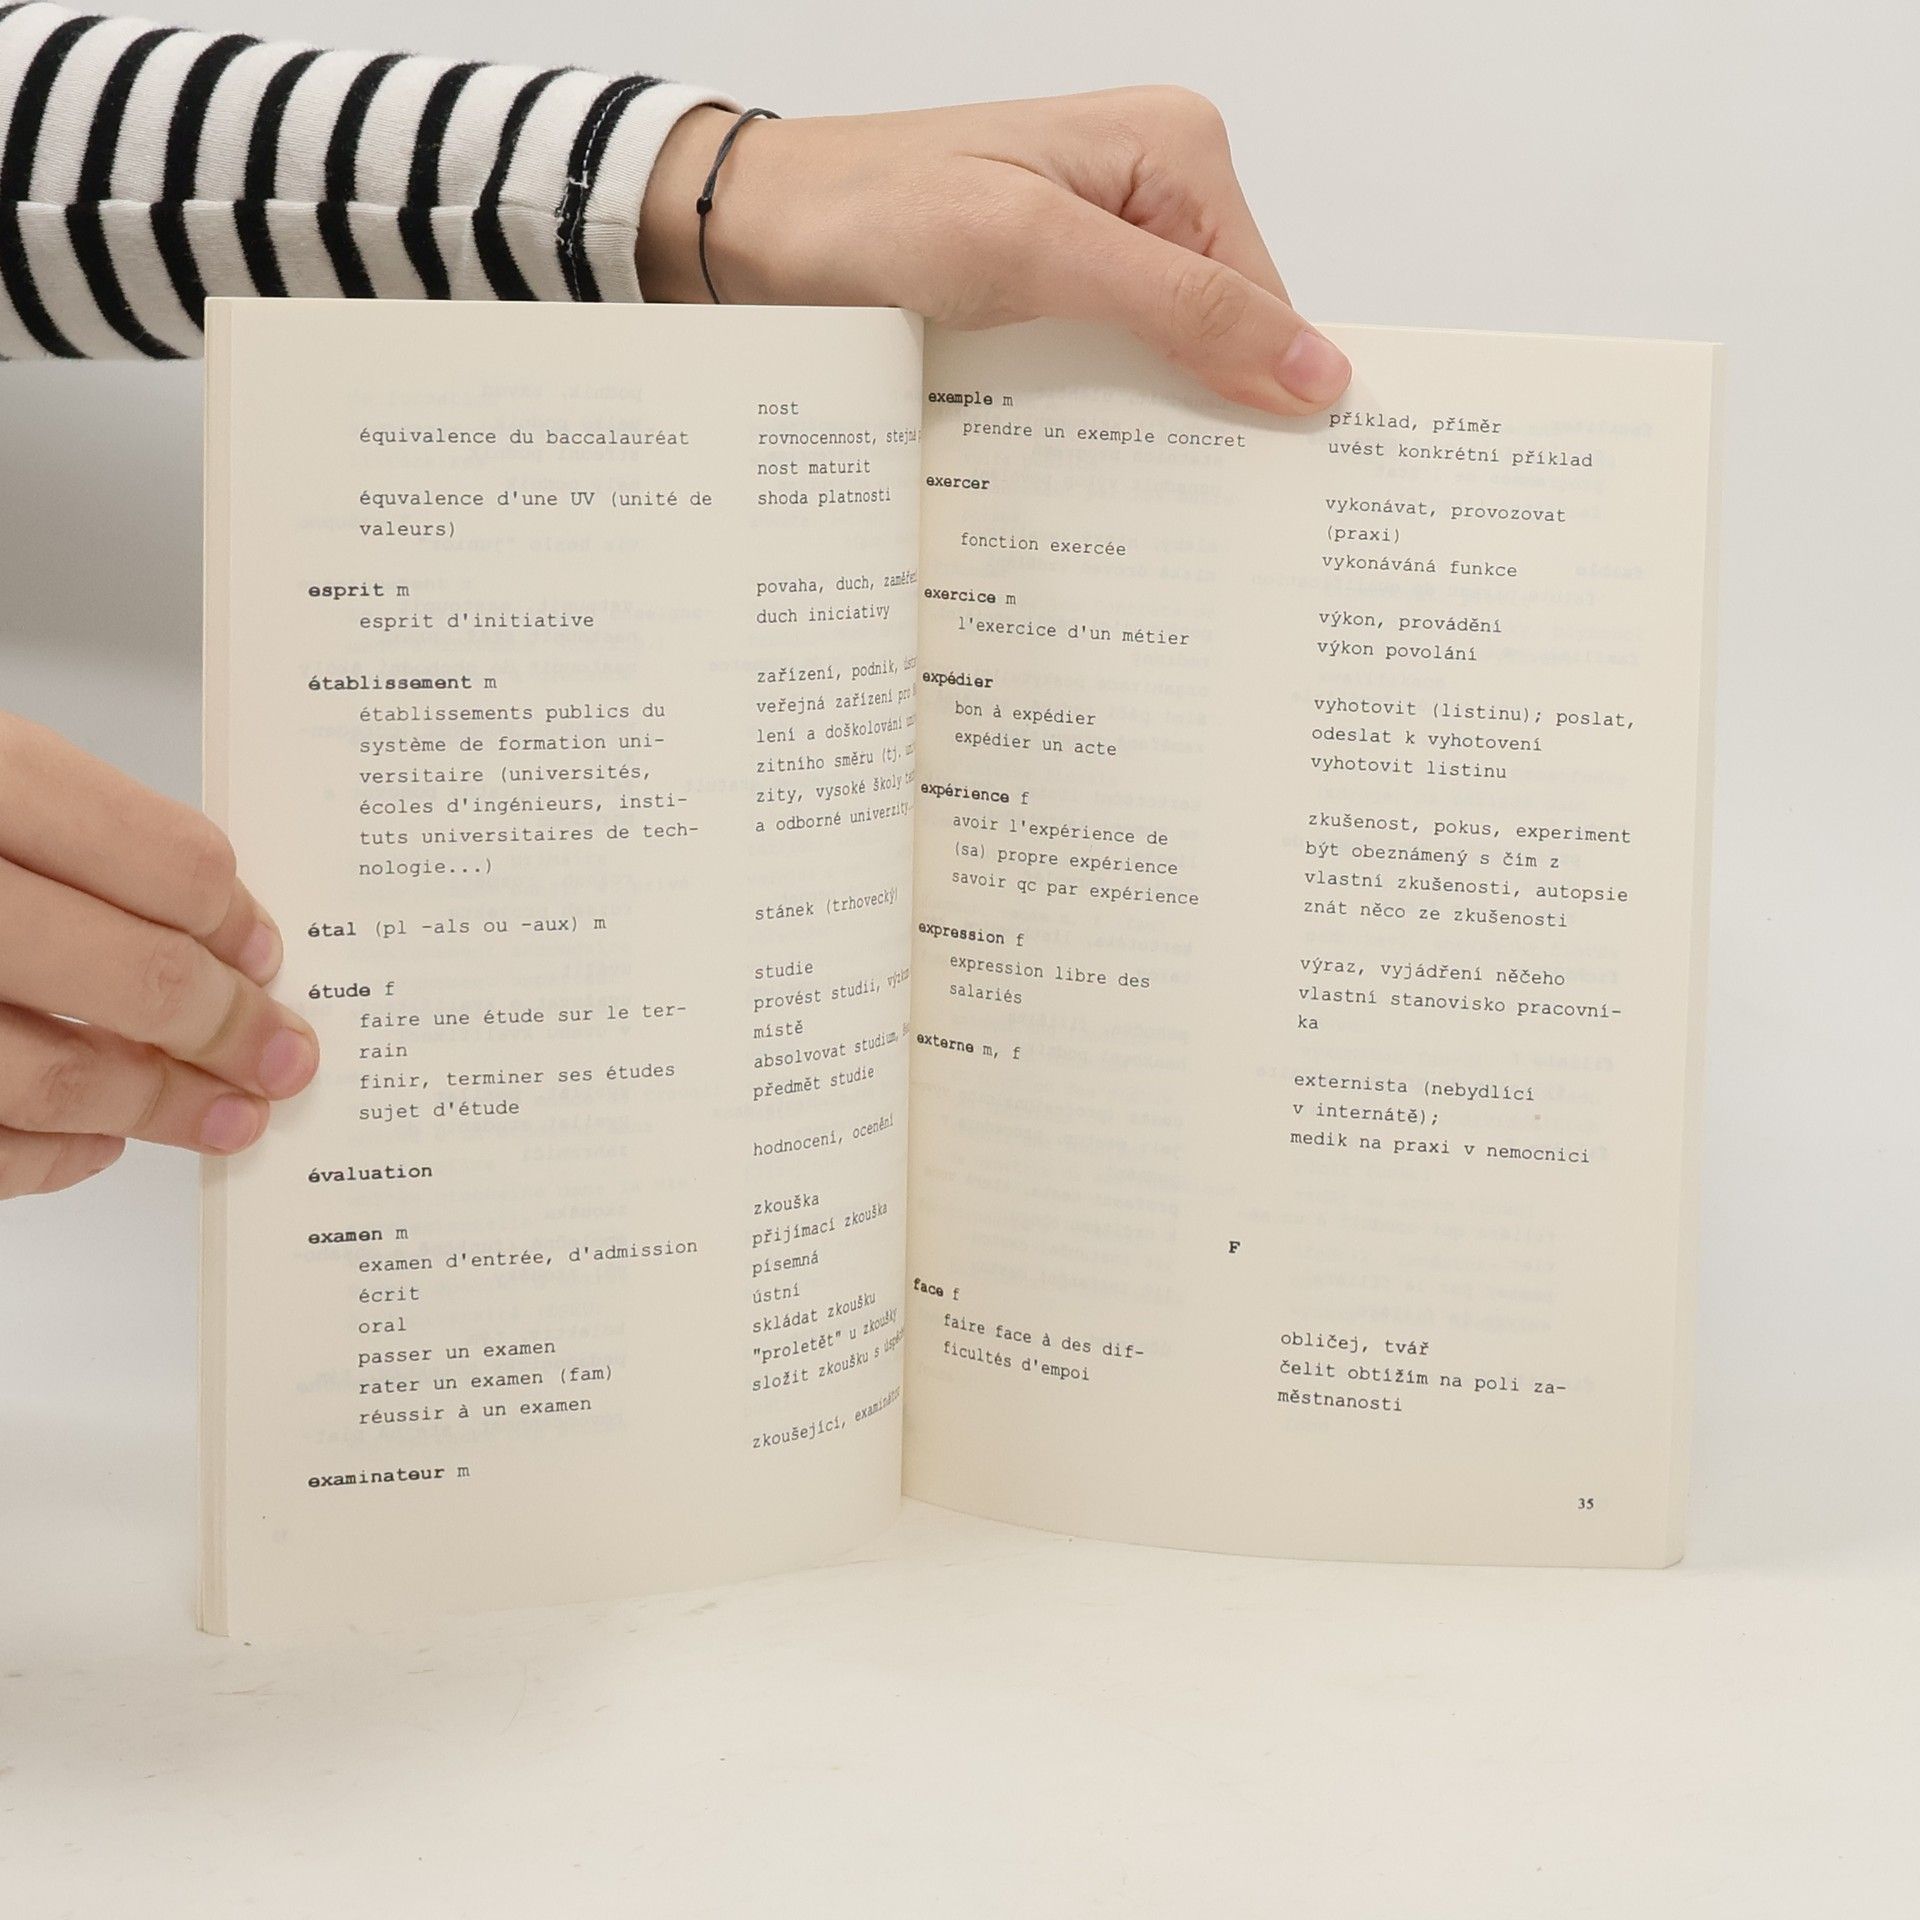 nost
équivalence du baccalauréat
rovnocennost, stejná
nost maturit
équvalence d'une UV (unité de
shoda platnosti
valeurs)
esprit m
povaha, duch,
esprit d'initiative
duch iniciativy
établissement m
zařízení, podnik,
établissements publics du
veřejná zařízení pro
système de formation uni-
lení a doškolování
versitaire (universités,
zitního směru (tj.
écoles d'ingénieurs, insti-
zity, vysoké školy
tuts universitaires de tech-
a odborné univerzity...
nologie...)
étal (pl -als ou -aux) m
stánek (trhovecký)
étude f
studie
faire une étude sur le ter-
provést studii,
rain
místě
finir, terminer ses études
absolvovat studium,
sujet d'étude
předmět studie
évaluation
hodnocení, ocenění
examen m
zkouška
examen d'entrée, d'admission
přijímací zkouška
écrit
písemná
oral
ústní
passer un examen
skládat zkoušku
rater un examen (fam)
"proletět" u zkoušky
réussir à un examen
složit zkoušku s
examinateur m
zkoušející, examinátor
exemple m
příklad, příměr
prendre un exemple concret
uvést konkrétní příklad
exercer
vykonávat, provozovat
(praxi)
fonction exercée
vykonáváná funkce
exercice m
výkon, provádění
l'exercice d'un métier
výkon povolání
expédier
vyhotovit (listinu); poslat,
bon à expédier
odeslat k vyhotovení
expédier un acte
vyhotovit listinu
expérience f
zkušenost, pokus, experiment
avoir l'expérience de
být obeznámený s čím z
(sa) propre expérience
vlastní zkušenosti, autopsie
savoir qc par expérience
znát něco ze zkušenosti
expression f
výraz, vyjádření něčeho
expression libre des
vlastní stanovisko pracovní-
salariés
ka
externe m, f
externista (nebydlící
v internátě);
medik na praxi v nemocnici
F
face f
obličej, tvář
faire face à des dif-
čelit obtížím na poli za-
ficultés d'empoi
městnanosti
35